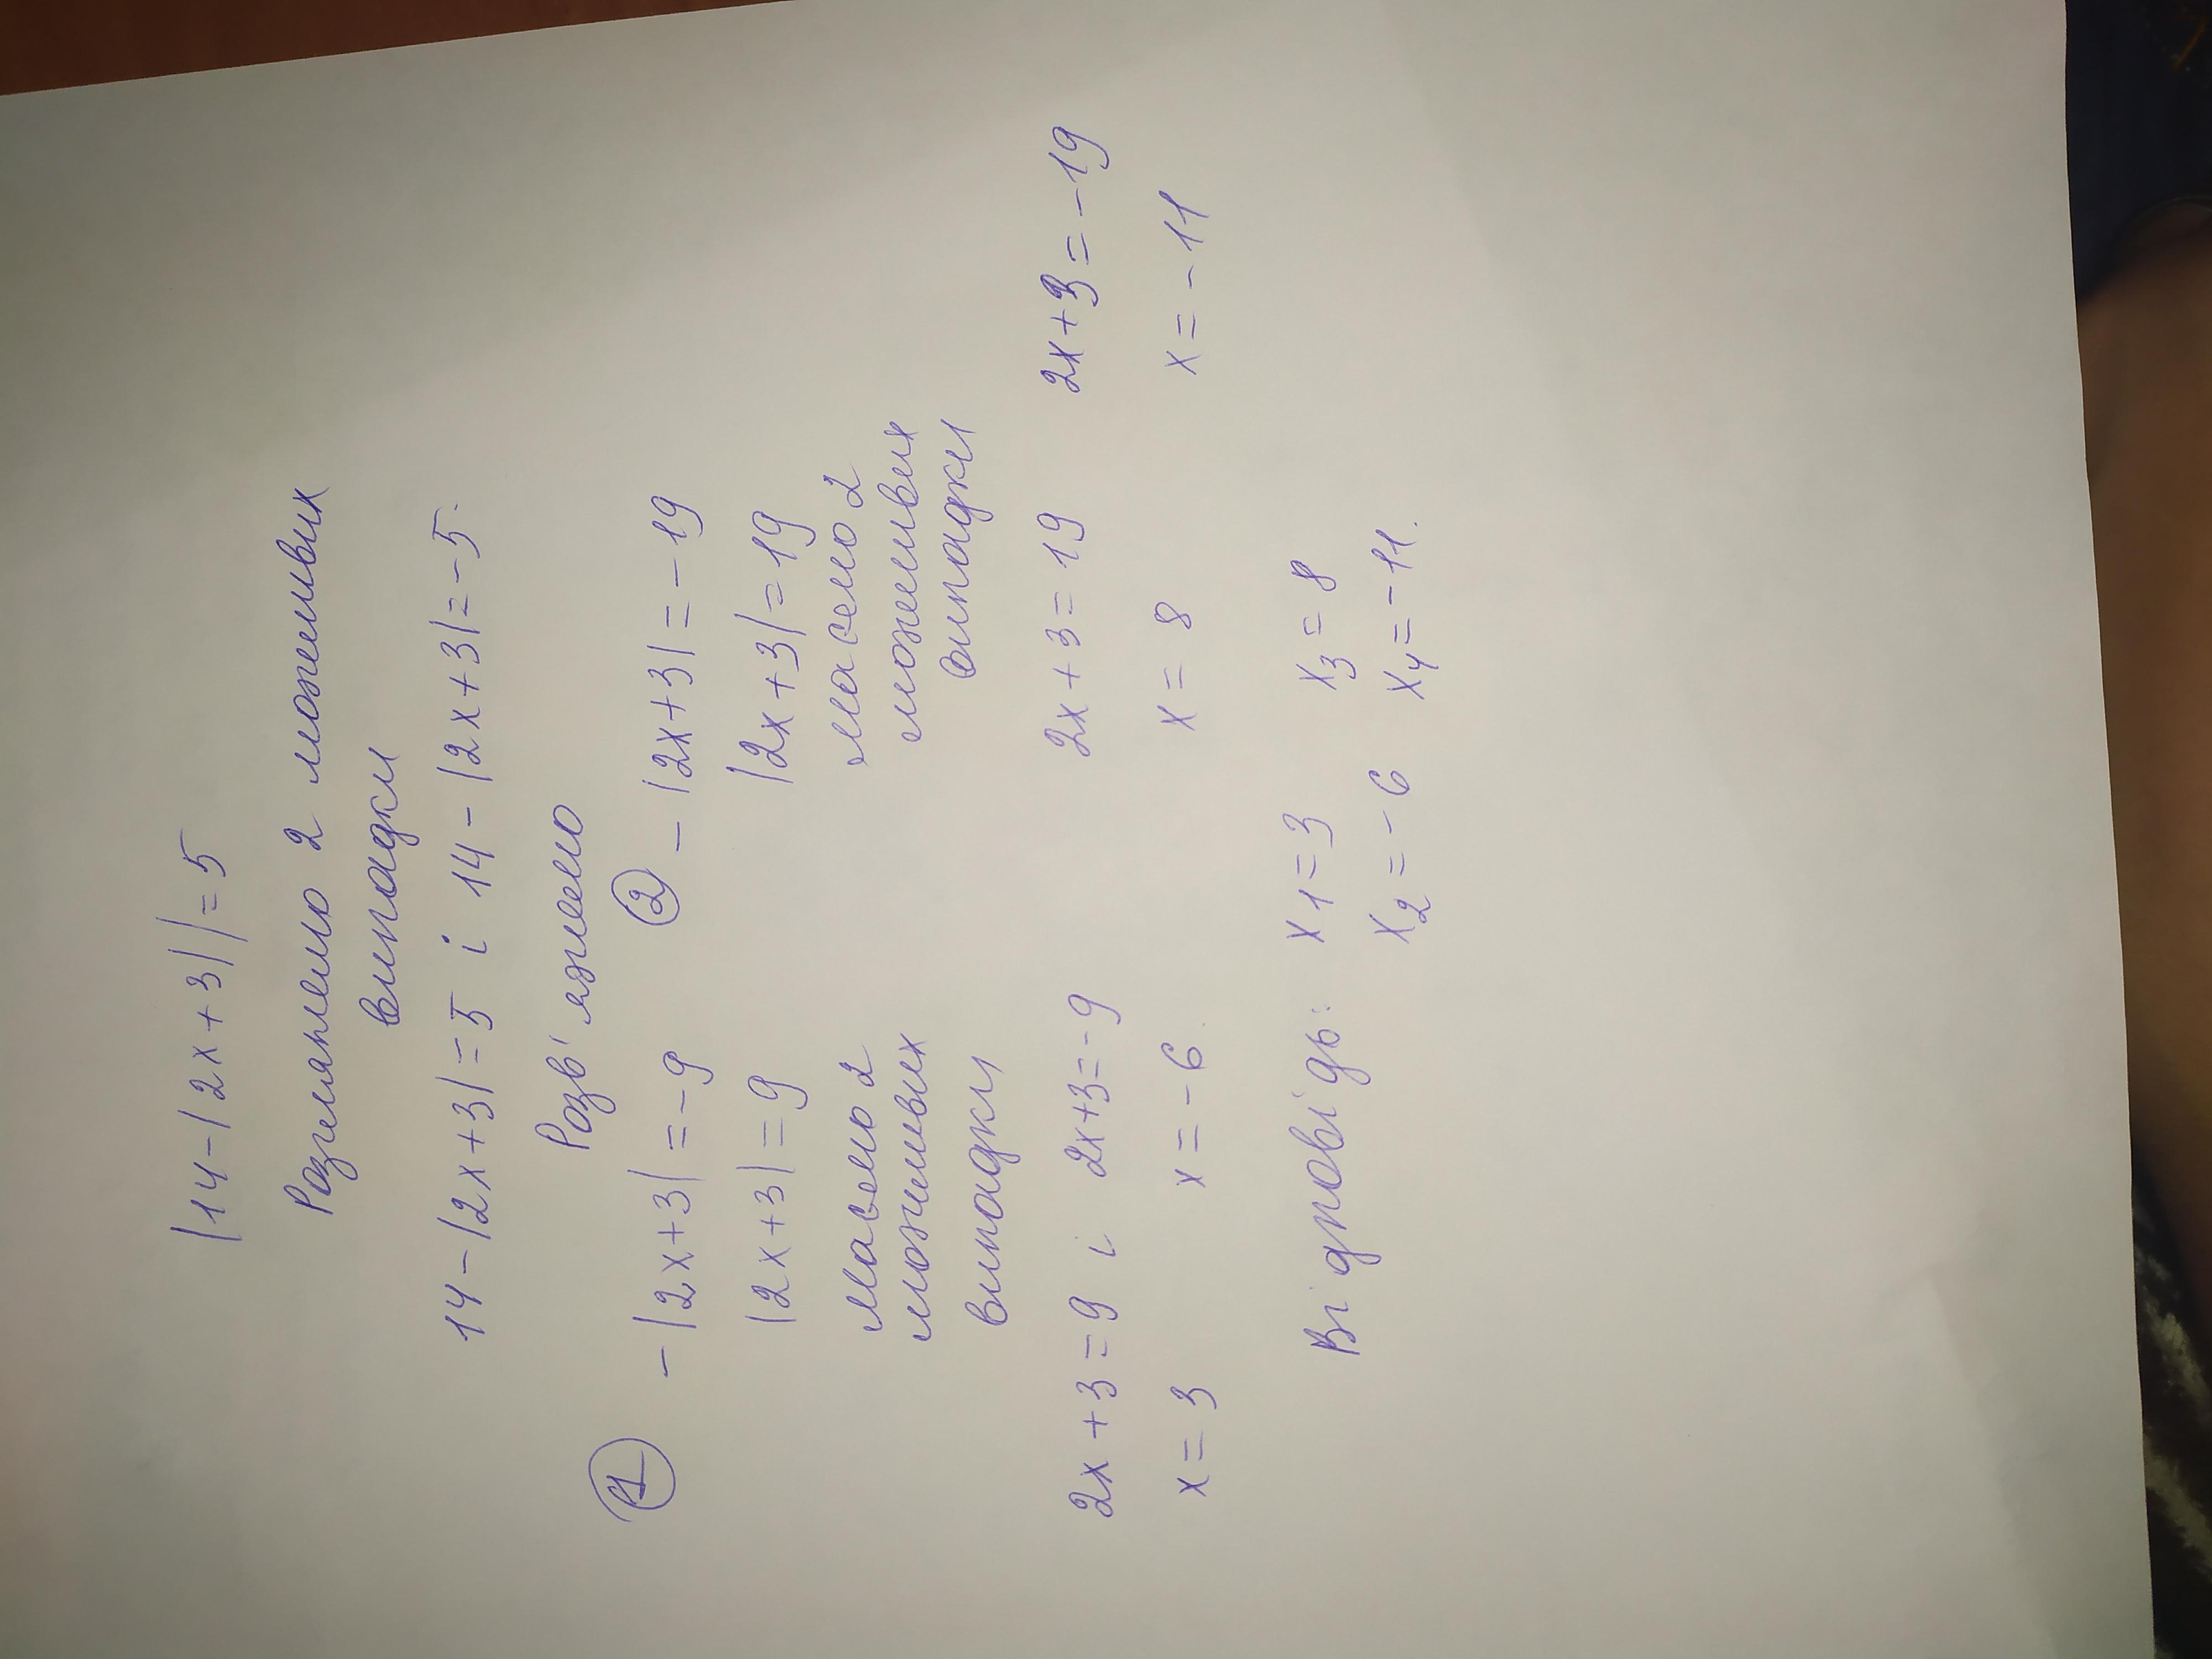 |14-|2x+3||=5
Розглянемо 2 можливих
випадки
14-|2x+3|=5 і 14-|2x+3|=-5.
Розв'яжемо
① -|2x+3|=-9 ② -|2x+3|=-19
|2x+3|=9 |2x+3|=19
маємо 2 маємо 2
можливих можливих
випадки випадки
2x+3=9 і 2x+3=-9 2x+3=19 2x+3=-19
x=3 x=-6. x=8 x=-11
Відповідь: x1=3 x3=8
x2=-6 x4=-11.